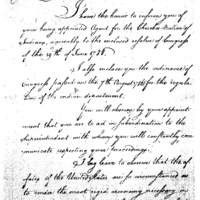 I have the honor to inform you of
your being appointed Agent for the Cherokee Nation of
Indians, agreeable to the enclosed resolve of Congress
of the 19th of June 1788.
I also enclose you the ordinance of
Congress passed on the 7th August 1786 for the regula
tion of the indian department.
You will observe by your appoint
ment that you are to act in subordination to the
Superintendent with whom you will constantly com
municate respecting your proceedings.
I beg leave to observe that the af
fairs of the United States are so circumstanced as
to render the most rigid oeconomy necessary in